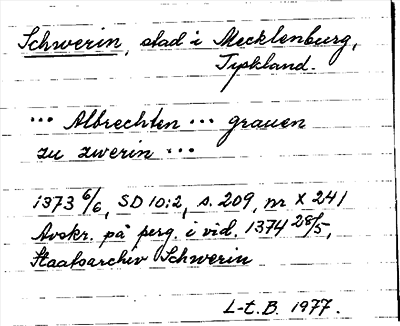 Schwerin, stad i Mecklenburg,
Tyskland.
... Albrechten ... grauen
zu zwerin ...
1373 6/6, SD 10:2, s. 209, nr X 241
Avskr. på perg. i vid. 1374 28/5,
Staatsarchiv Schwerin
L-t. B. 1977.